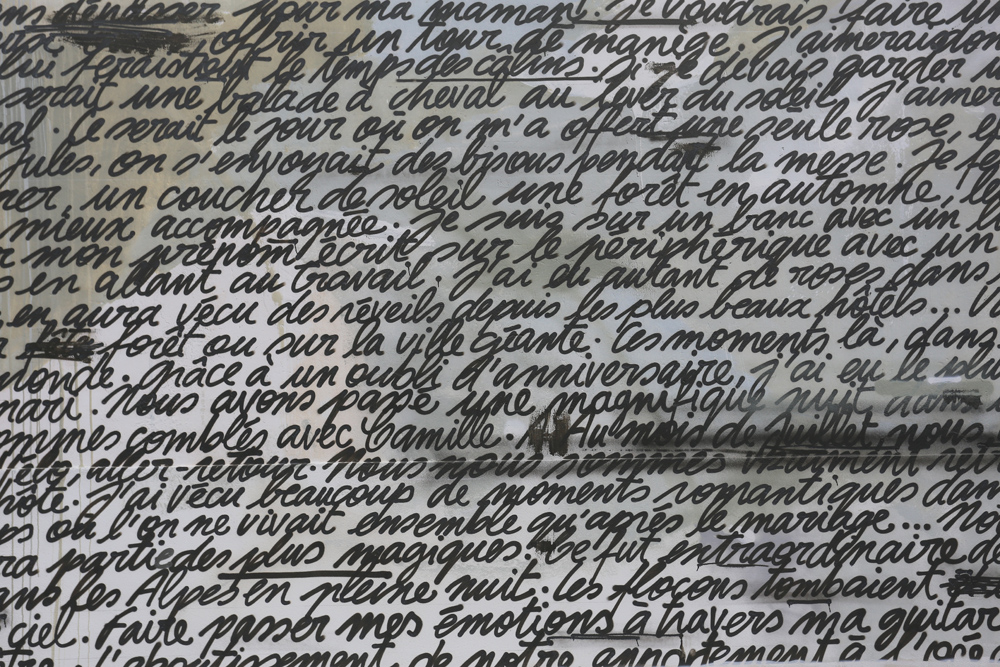 pour ma maman. Je voudrais faire un
offrir un tour de manège. J'aimerais
lui ferais tout le temps des calins. Si je debais garder
serait une balade à cheval au lever du soleil J'aimer
al. Ce serait le jour où on m'a offert une seule rose, e
Jules, on s'envoyait des bisous pendant la messe. Je fe
ner, un coucher de soleil une forêt en automne, le
mieux accompagnée. Je suis sur un banc avec un l
r mon prénom écrit sur le périphérique avec un
s en allant au travail, J'ai eu autant de roses dans
en aura vécu des réveils depuis les plus beaux hôtels... V
forêt ou sur la ville géante. Ces moments là, dans
monde. Grâce à un oubli d'anniversaire, J'ai eu le plu
mari. Nous avons passé une magnifique nuit dans
ommes comblés avec Camille. Au mois de Juillet, nous
aller-retour. Nous nous sommes vraiment
J'ai vécu beaucoup de moments romantiques dan
ps où l'on ne vivait ensemble qu'après le mariage... No
ra partie des plus magiques. Ce fut extraordinaire de
ans les Alpes en pleine nuit. Les flocons tombaient
ciel. Faire passer mes émotions à travers ma guitar
l'aboutissement de notre appartement à l'